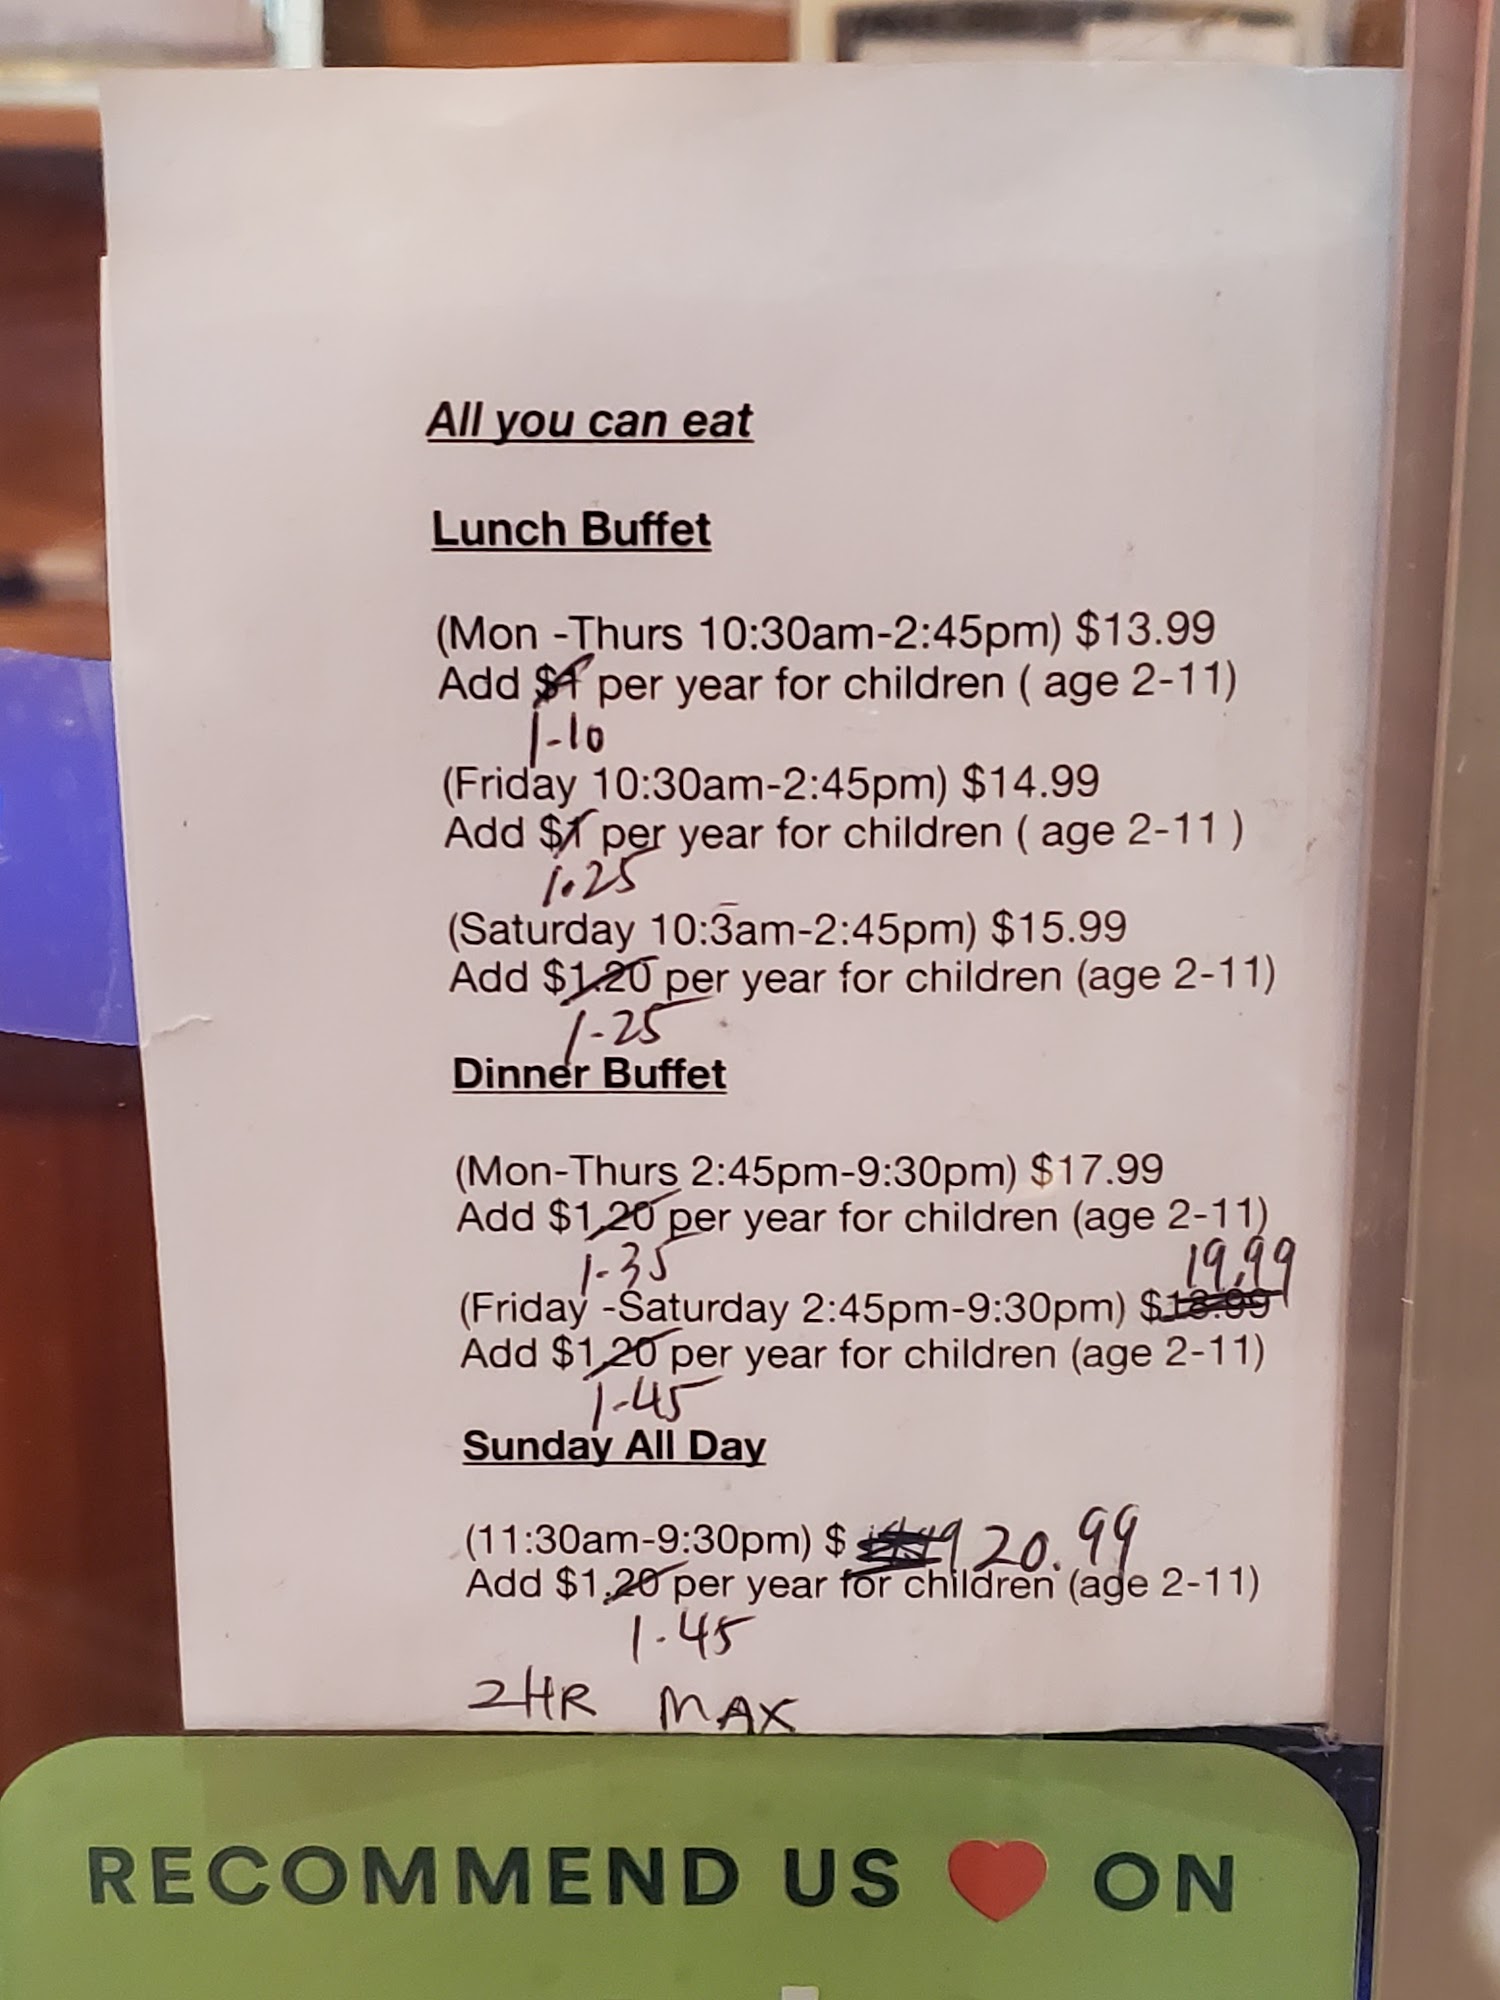 All you can eat
Lunch Buffet
(Mon -Thurs 10:30am-2:45pm) $13.99
Add $1 per year for children ( age 2-11)
1-10
(Friday 10:30am-2:45pm) $14.99
Add $1 per year for children ( age 2-11 )
1.25
(Saturday 10:3am-2:45pm) $15.99
Add $1.20 per year for children (age 2-11)
1-25
Dinner Buffet
(Mon-Thurs 2:45pm-9:30pm) $17.99
Add $1.20 per year for children (age 2-11)
1-35
19.99
(Friday -Saturday 2:45pm-9:30pm) $18.99
Add $1.20 per year for children (age 2-11)
1-45
Sunday All Day
(11:30am-9:30pm) $ 20.99
Add $1.20 per year for children (age 2-11)
1-45
2HR MAX
RECOMMEND US ON